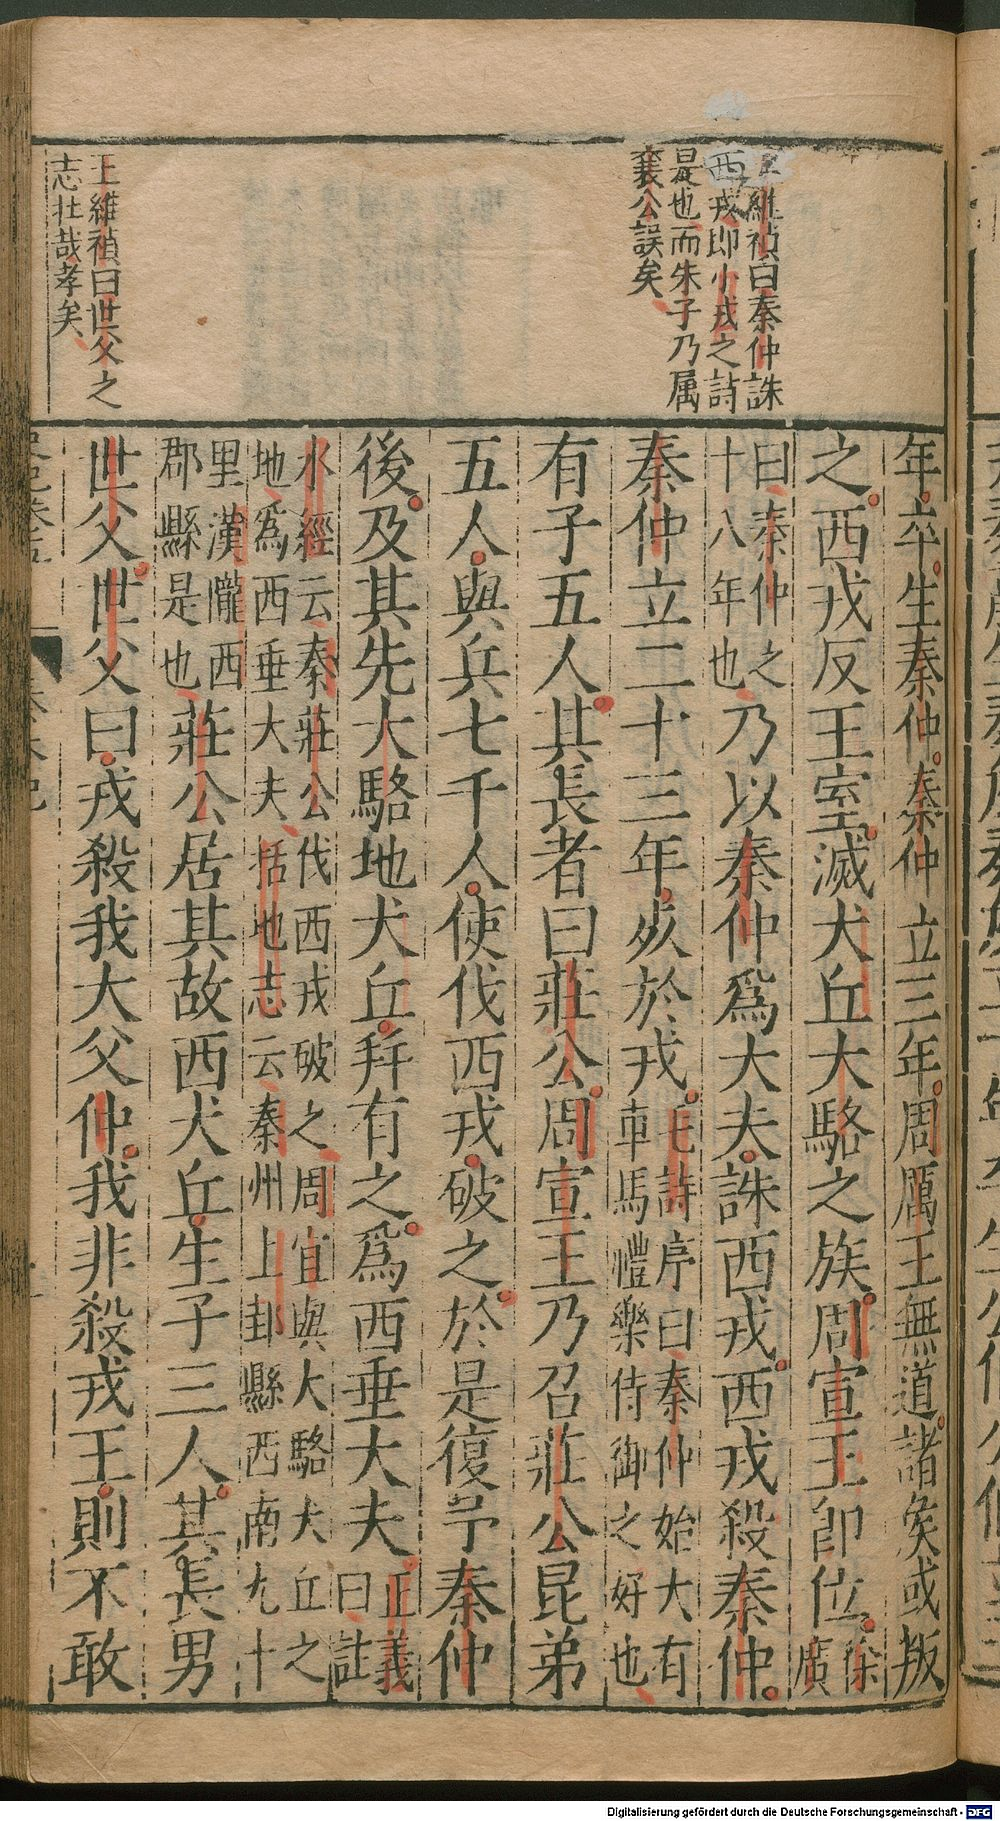 王維禎曰秦仲誅
西戎即小戎之詩
是也而朱子乃属
襄公誤矣
王維禎曰世父之
志壮哉孝矣
年卒生秦仲秦仲立三年周厲王無道諸矦或叛
之西戎反王室滅犬丘大駱之族周宣王卽位徐廣
曰秦仲之十八年也乃以秦仲爲大夫誅西戎西戎殺秦仲
秦仲立二十三年死於戎毛詩序曰秦仲始大有車馬禮樂侍御之好也
有子五人其長者曰莊公周宣王乃召莊公昆弟
五人與兵七千人使伐西戎破之於是復予秦仲
後及其先大駱地犬丘幷有之爲西垂大夫正義曰註
水經云秦莊公伐西戎破之周宣與大駱犬丘之地爲西垂大夫括地志云秦州上邽縣西南九十
里漢隴西郡縣是也莊公居其故西犬丘生子三人其長男
世父世父曰戎殺我大父仲我非殺戎王則不敢
Digitalisierung gefördert durch die Deutsche Forschungsgemeinschaft - DFG